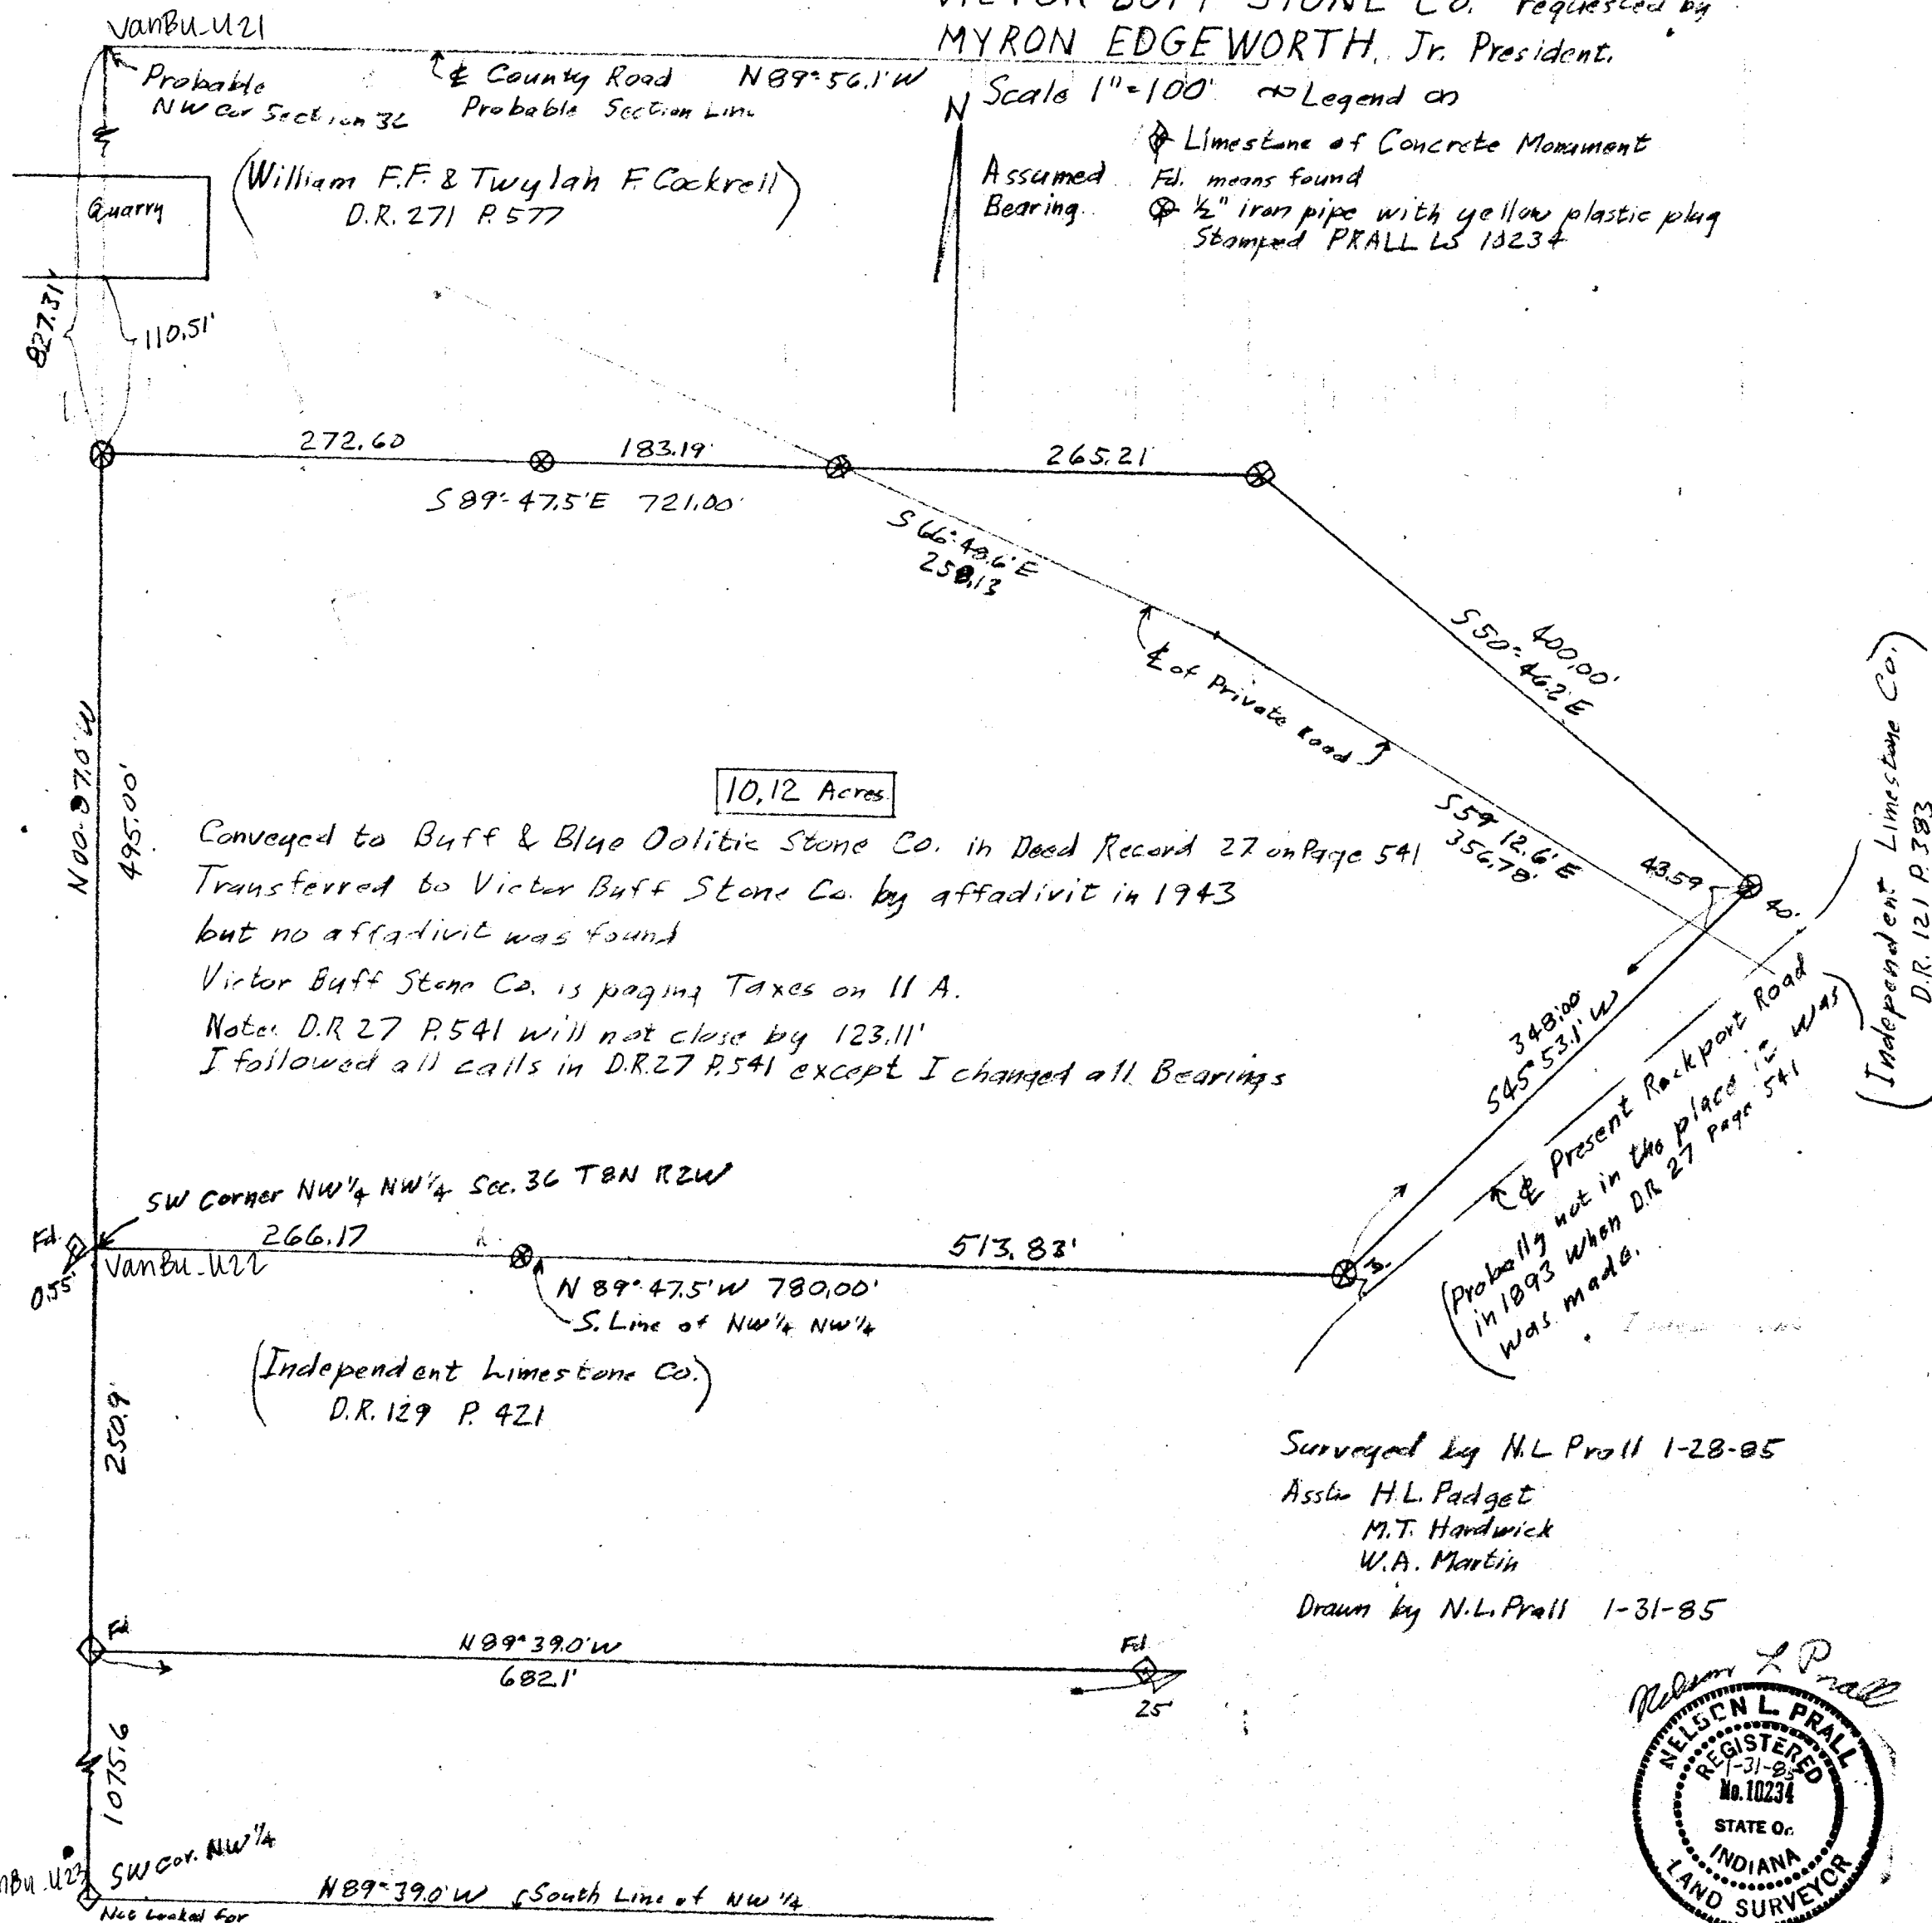 VICTOR BUFF STONE CO. requested by
MYRON EDGEWORTH, Jr. President.
Scale 1"=100'
Legend
Limestone of Concrete Monument
Fd. means found
½" iron pipe with yellow plastic plug
Stamped PRALL LS 10234
N
Assumed
Bearing
VanBu-U21
Probable
NW Cor Section 36
℄ County Road N 89°-56.1' W
Probable Section Line
(William F.F. & Twylah F. Cockrell)
D.R. 271 P. 577
Quarry
827.31'
110.51'
272.60
183.19'
265.21'
S 89°-47.5' E 721.00'
S 66°-48.6' E
258.13
℄ of Private Road
400.00'
S 50°-46.2' E
S 59° 12.6' E
356.78'
43.59
40.
(Independent Limestone Co.)
D.R. 121 P. 383
N 00-07.0' W
495.00'
10.12 Acres
Conveyed to Buff & Blue Oolitic Stone Co. in Deed Record 27 on Page 541
Transferred to Victor Buff Stone Co. by affadivit in 1943
but no affadivit was found
Victor Buff Stone Co. is paying Taxes on 11 A.
Note: D.R 27 P.541 will not close by 123.11'
I followed all calls in D.R.27 P.541 except I changed all Bearings
348.00'
S45°53.1' W
℄ Present Rockport Road
(Probably not in the place it was
in 1893 when D.R. 27 Page 541
was made.)
SW Corner NW¼ NW¼ Sec. 36 T8N R2W
Fd.
0.55'
VanBu-U22
266.17
513.83'
N 89°-47.5' W 780.00'
S. Line of NW¼ NW¼
(Independent Limestone Co.)
D.R. 129 P. 421
250.9'
Surveyed by N.L Prall 1-28-85
Assts H.L. Padget
M.T. Hardwick
W.A. Martin
Drawn by N.L. Prall 1-31-85
Fd
N 89° 39.0' W
682.1'
Fd
25'
1075.6
SW Cor. NW¼
nBu-U23
Not Looked for
N 89° 39.0' W South Line of NW¼
Nelson L Prall
NELSON L. PRALL
REGISTERED
1-31-85
No. 10234
STATE OF
INDIANA
LAND SURVEYOR